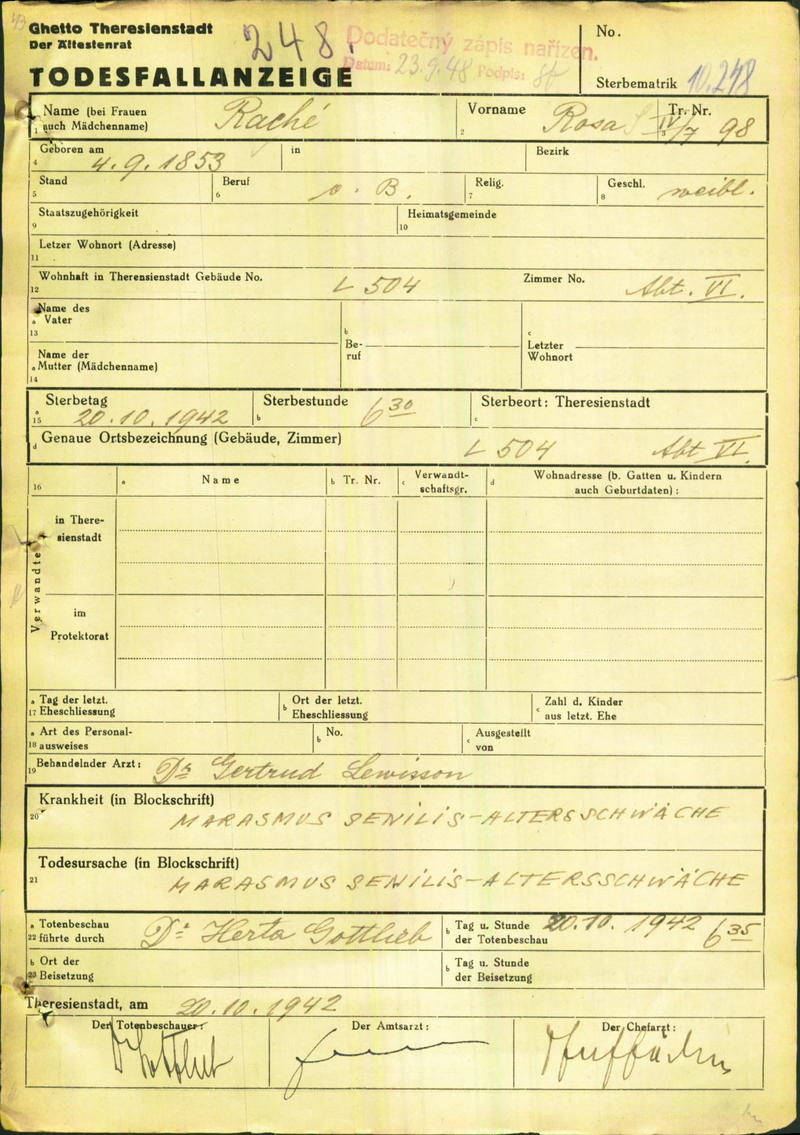 Ghetto Theresienstadt
Der Ältestenrat
TODESFALLANZEIGE
248.
Dodatečný zápis nařízen.
Datum: 23.9.48 Podpis:
No.
Sterbematrik 10.248
Name (bei Frauen auch Mädchenname) Raché
1
Vorname Rosa
2
Tr. Nr. IV/7 98
3
Geboren am 4.9.1853
4
in
Bezirk
Stand
5
Beruf o. B.
6
Relig.
7
Geschl. weibl.
8
Staatszugehörigkeit
9
Heimatsgemeinde
10
Letzer Wohnort (Adresse)
11
Wohnhaft in Therensienstadt Gebäude No. L 504
12
Zimmer No. Abt. VI.
Name des
a Vater
13
b
Be-
ruf
c
Letzter
Wohnort
Name der
a Mutter (Mädchenname)
14
Sterbetag
a
15 20.10.1942
Sterbestunde
b 6 30
Sterbeort: Theresienstadt
c
d Genaue Ortsbezeichnung (Gebäude, Zimmer) L 504 Abt VI.
16
a Name
b Tr. Nr.
c Verwandt-
schaftsgr.
d Wohnadresse (b. Gatten u. Kindern
auch Geburtdaten) :
Verwandte
in There-
sienstadt
im
Protektorat
a Tag der letzt.
17 Eheschliessung
b Ort der letzt.
Eheschliessung
c Zahl d. Kinder
aus letzt. Ehe
a Art des Personal-
18 ausweises
b No.
c Ausgestellt
von
19 Behandelnder Arzt: Dr Gertrud Lewisson
Krankheit (in Blockschrift)
20 MARASMUS SENILIS-ALTERSSCHWÄCHE
Todesursache (in Blockschrift)
21 MARASMUS SENILIS-ALTERSSCHWÄCHE
a Totenbeschau
22 führte durch Dr Herta Gottlieb
b Tag u. Stunde
der Totenbeschau 20.10.1942 6 35
b Ort der
23 Beisetzung
b Tag u. Stunde
der Beisetzung
Theresienstadt, am 20.10.1942
Der Totenbeschauer:
Dr Gottlieb
Der Amtsarzt:
Der Chefarzt: